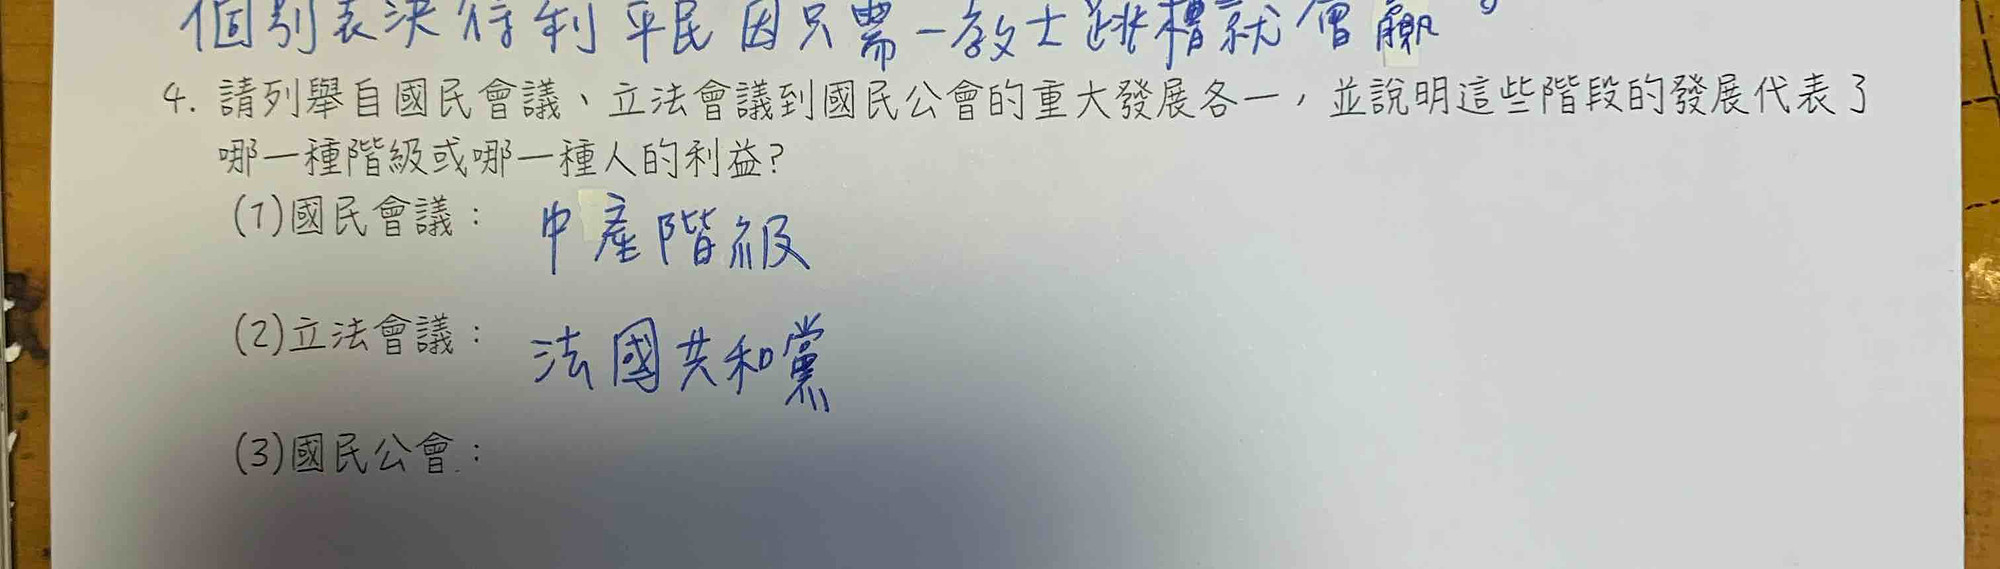 個別表決待利平民因只需一教士跳槽就會贏。
4. 請列舉自國民會議、立法會議到國民公會的重大發展各一，並說明這些階段的發展代表了
哪一種階級或哪一種人的利益?
(1)國民會議： 中產階級
(2)立法會議： 法國共和黨
(3)國民公會：